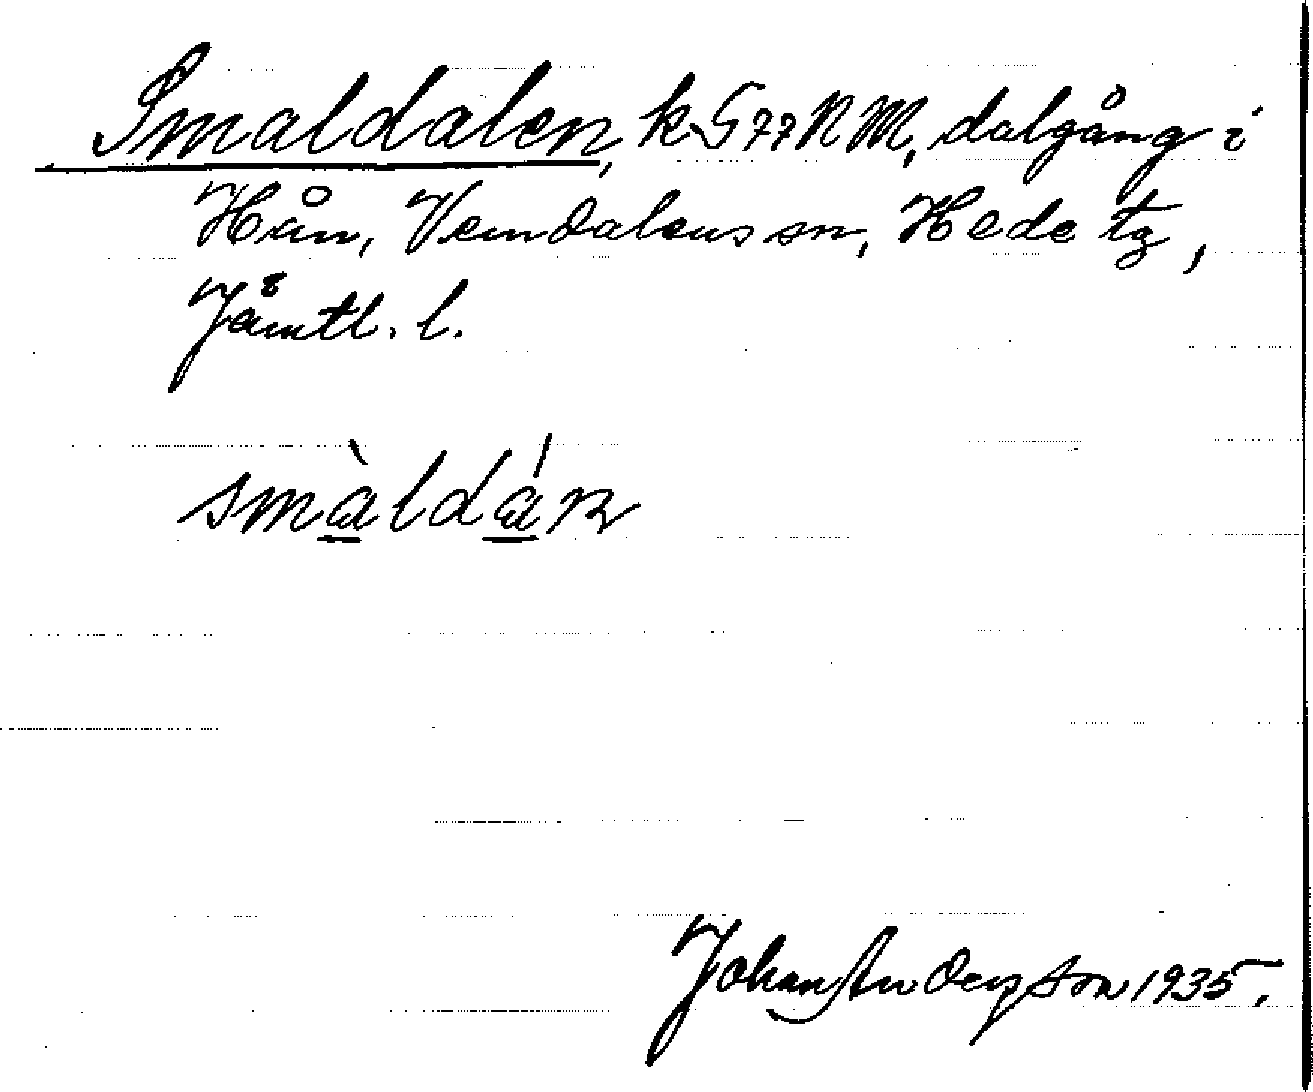 Smaldalen, k S77NM, dalgång i
Hån, Vemdalens sn, Hede tg,
Jämtl. l.
smàldán
Johan Anderson 1935.